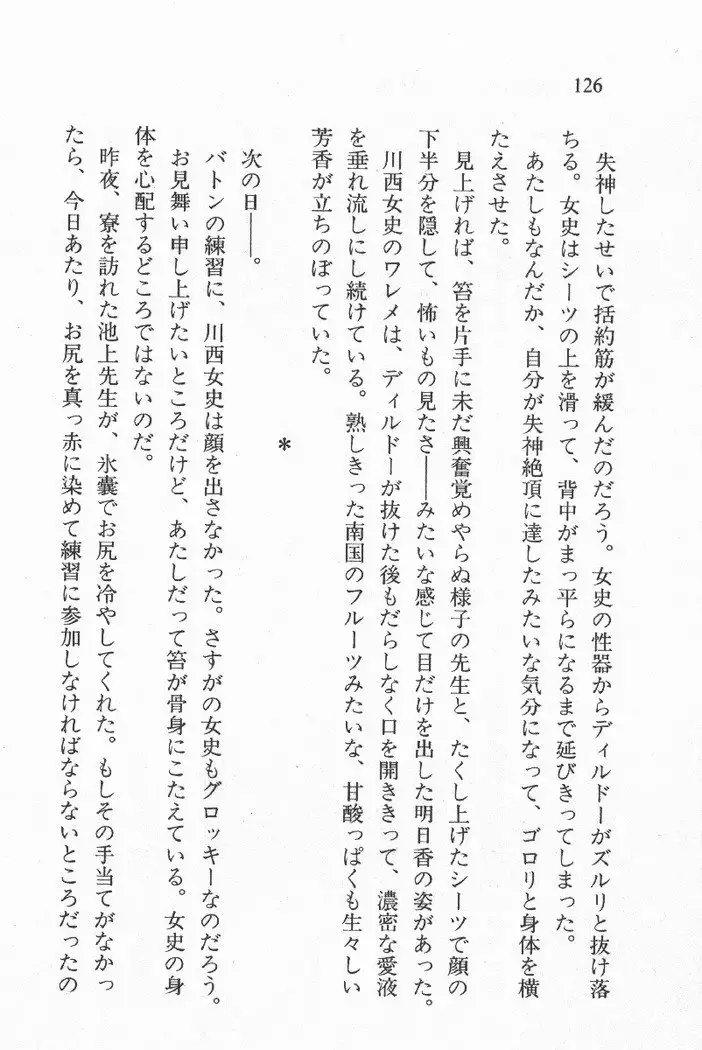 126
失神したせいで括約筋が緩んだのだろう。女史の性器からディルドーがズルリと抜け落
ちる。女史はシーツの上を滑って、背中がまっ平らになるまで延びきってしまった。
あたしもなんだか、自分が失神絶頂に達したみたいな気分になって、ゴロリと身体を横
たえさせた。
見上げれば、笞を片手に未だ興奮覚めやらぬ様子の先生と、たくし上げたシーツで顔の
下半分を隠して、怖いもの見たさ――みたいな感じて目だけを出した明日香の姿があった。
川西女史のワレメは、ディルドーが抜けた後もだらしなく口を開ききって、濃密な愛液
を垂れ流しにし続けている。熟しきった南国のフルーツみたいな、甘酸っぱくも生々しい
芳香が立ちのぼっていた。
*
次の日――。
バトンの練習に、川西女史は顔を出さなかった。さすがの女史もグロッキーなのだろう。
お見舞い申し上げたいところだけど、あたしだって笞が骨身にこたえている。女史の身
体を心配するどころではないのだ。
昨夜、寮を訪れた池上先生が、氷嚢でお尻を冷やしてくれた。もしその手当てがなかっ
たら、今日あたり、お尻を真っ赤に染めて練習に参加しなければならないところだったの